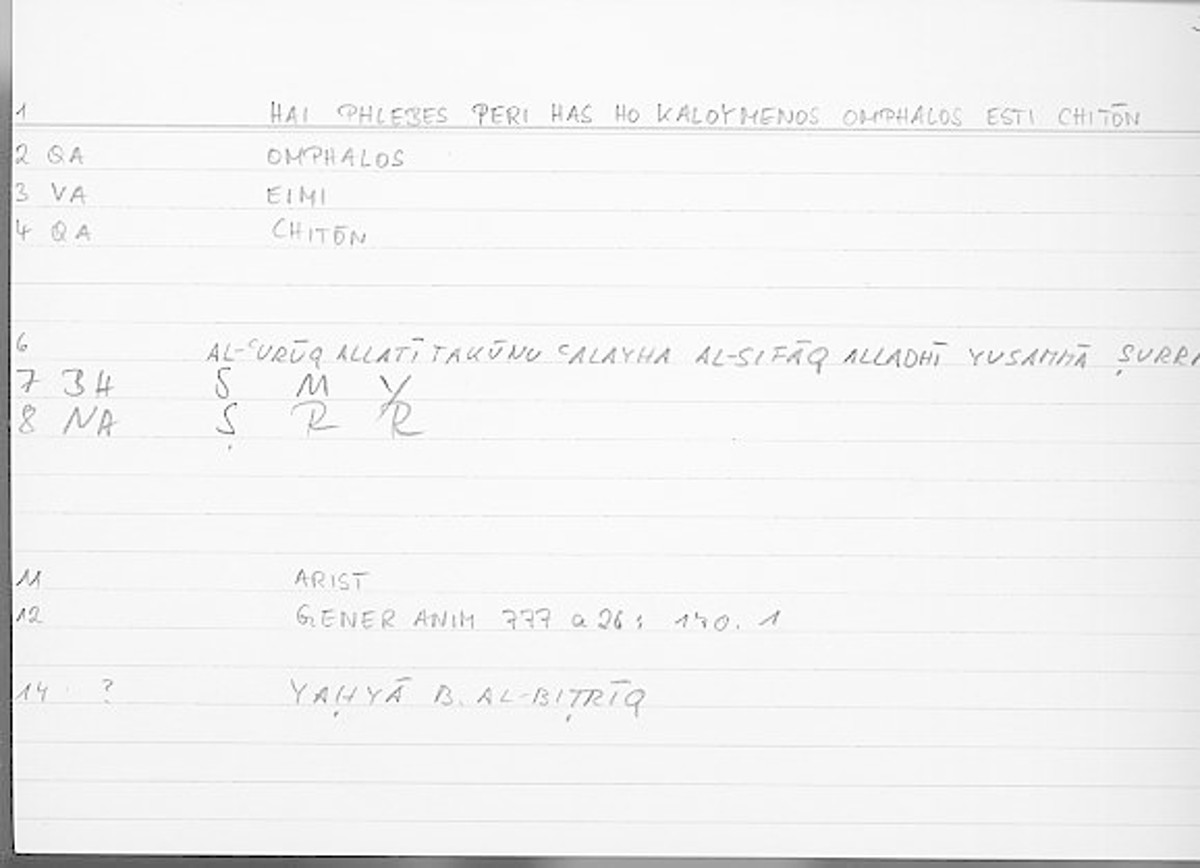 1 HAI PHLEBES PERI HAS HO KALOYMENOS OMPHALOS ESTI CHITŌN
2 QA OMPHALOS
3 VA EIMI
4 QA CHITŌN
6 AL-ʿURŪQ ALLATĪ TAKŪNU ʿALAYHA AL-SIFĀQ ALLADHĪ YUSAMMĀ ṢURRA
7 BH S M Y
8 NA Ṣ R R
11 ARIST
12 GENER ANIM 777 a 26 : 170. 1
14 ? YAḤYĀ B. AL-BIṬRĪQ